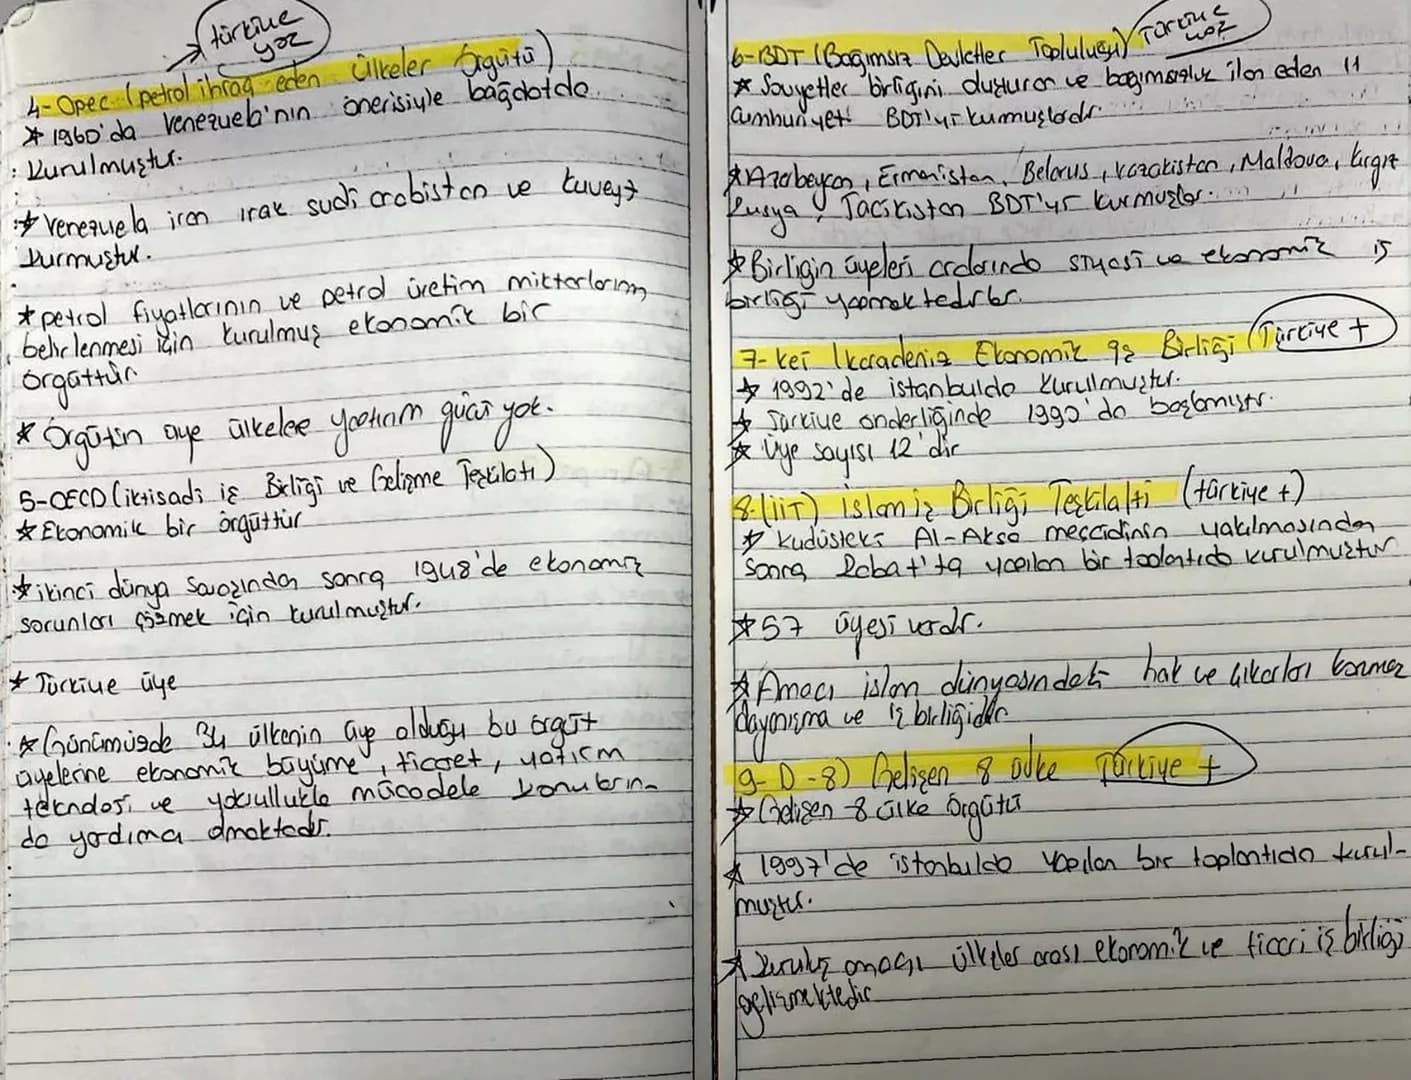 türkiye
yoz
4-Opec (petrol ihraç eden ülkeler Örgütü)
* 1960'da Venezuela'nın önerisiyle bağdatda
kurulmuştur.
* Venezuela iran ırak sudi arabistan ve kuveyt
kurmuştur.
* petrol fiyatlarının ve petrol üretim miktarlarının
belirlenmesi için kurulmuş ekonomik bir
örgüttür.
* Örgütün üye ülkelere yaptırım gücü yok.
5-OECD (iktisadi iş Birliği ve Gelişme Teşkilatı)
* Ekonomik bir örgüttür
* ikinci dünya savaşından sonra 1948'de ekonomik
sorunları çözmek için kurulmuştur.
* Türkiye üye
* Günümüzde 34 ülkenin üye olduğu bu örgüt
üyelerine ekonomik büyüme, ticaret, yatırım
teknoloji ve yoksullukla mücadele konuların-
da yardımcı olmaktadır.
Türkiye
yoz
6-BDT (Bağımsız Devletler Topluluğu)
* Sovyetler birliğini oluşturan ve bağımsızlık ilan eden 11
Cumhuriyet BDT'yi kurmuşlardır
* Azerbeycan, Ermenistan, Belarus, kazakistan, Maldova, kırgız
Rusya, Tacikistan BDT'yi kurmuşlar.
* Birliğin üyeleri aralarında siyasi ve ekonomik iş
birliği yapmaktedırlar.
7-kei (karadeniz Ekonomik iş Birliği (Türkiye +)
* 1992'de istanbulda kurulmuştur.
* Türkiye önderliğinde 1990'da başlamıştır.
* Üye sayısı 12'dir
8-(iiT) islam iş Birliği Teşkilaltı (türkiye +)
* kudüsteki Al-Aksa mescidinin yakılmasından
sonra Rabat'ta yapılan bir toplantıda kurulmuştur
* 57 üyesi vardır.
* Amacı islam dünyasındaki hak ve çıkarları korumak
dayanışma ve iş birliğidir.
9- D-8) Gelişen 8 ülke Türkiye +
* Gelişen 8 ülke örgütü
* 1997'de istanbulda yapılan bir toplantıda kurul-
muştur.
* Kuruluş amacı ülkeler arası ekonomik ve ticari iş birliği
gelişmektedir